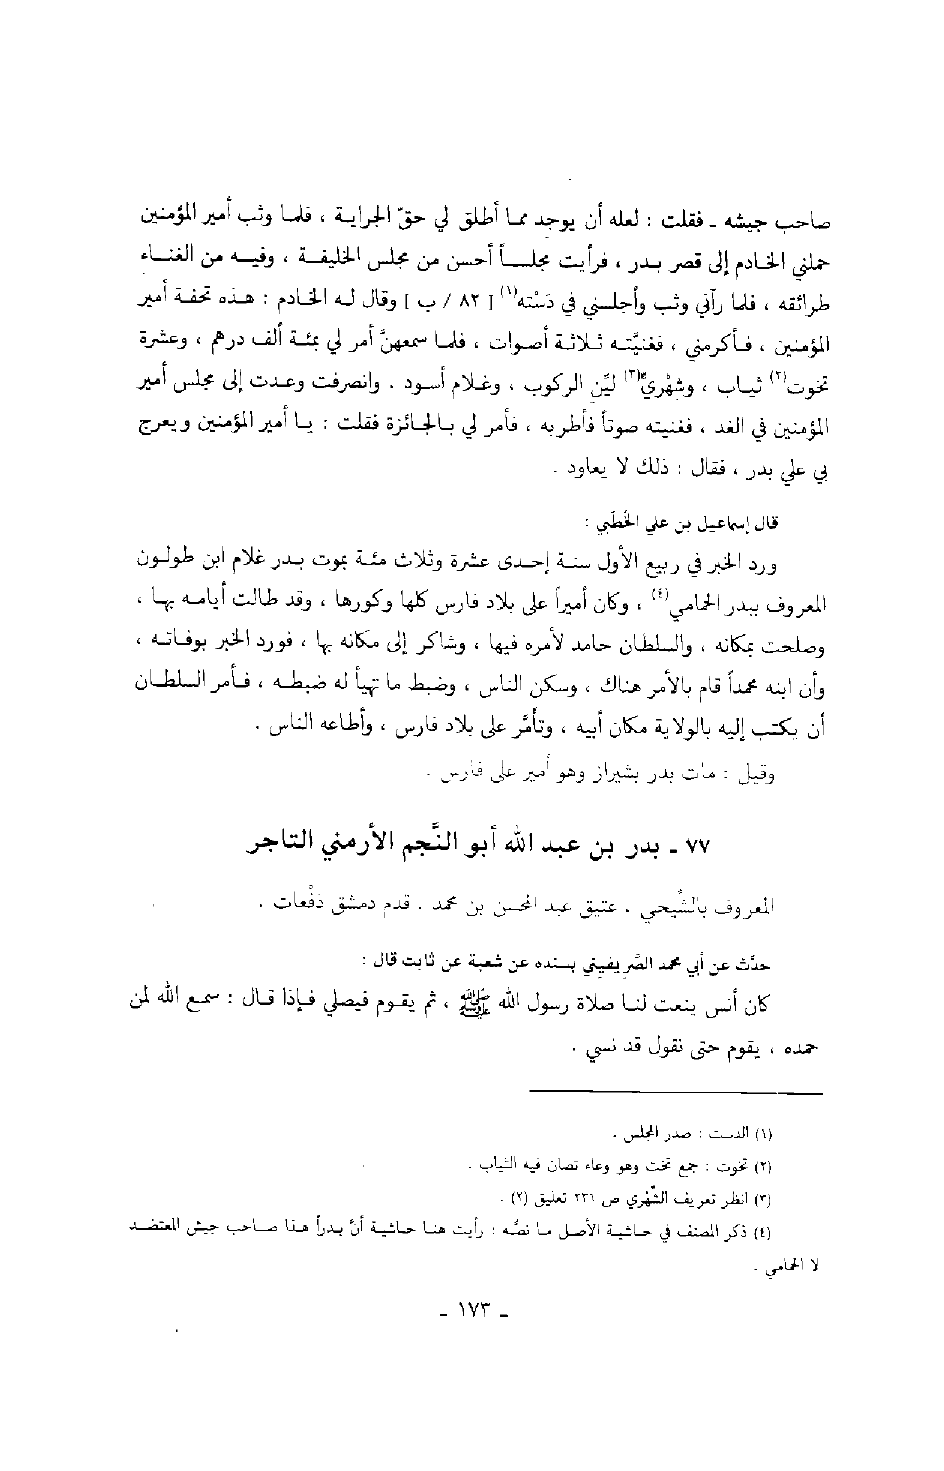 صاحب جيشه ـ فقلت : لعله أن يوجد مما أطلق لي حقّ الجراية ، فلما وثب أمير المؤمنين
حملني الخادم إلى قصر بدر ، فرأيت مجلساً أحسن من مجلس الخليفة ، وفيه من الغناء
طرائقه ، فلما رآني وثب وأجلسني في دَسْته(١) [ ٨٢ / ب ] وقال له الخادم : هذه تحفة أمير
المؤمنين ، فأكرمني ، فغنيَّته ثلاثة أصوات ، فلما سمعهنّ أمر لي بمئة ألف درهم ، وعشرة
تخوت(٢) ثياب ، وشِهْريّ(٣) ليّن الركوب ، وغلام أسود . وانصرفت وعدت إلى مجلس أمير
المؤمنين في الغد ، فغنيته صوتاً فأطربه ، فأمر لي بالجائزة فقلت : يا أمير المؤمنين ويعرج
بي على بدر ، فقال : ذلك لا يعاود .
قال إسماعيل بن علي الخُطَبي :
ورد الخبر في ربيع الأول سنة إحدى عشرة وثلاث مئة بموت بدر غلام ابن طولون
المعروف ببدر الحمامي(٤) ، وكان أميراً على بلاد فارس كلها وكورها ، وقد طالت أيامه بها ،
وصلحت بمكانه ، والسلطان حامد لأمره فيها ، وشاكر إلى مكانه بها ، فورد الخبر بوفاته ،
وأن ابنه محمداً قام بالأمر هناك ، وسكن الناس ، وضبط ما تهيأ له ضبطه ، فأمر السلطان
أن يكتب إليه بالولاية مكان أبيه ، وتأمَّر على بلاد فارس ، وأطاعه الناس .
وقيل : مات بدر بشيراز وهو أمير على فارس .
٧٧ ـ بدر بن عبد الله أبو النَّجم الأرمني التاجر
المعروف بالشِّيحي . عتيق عبد المحسن بن محمد . قدم دمشق دَفْعات .
حدَّث عن أبي محمد الصَّريفيني بسنده عن شعبة عن ثابت قال :
كان أنس ينعت لنا صلاة رسول الله ﷺ ، ثم يقوم فيصلي فإذا قال : سمع الله لمن
حمده ، يقوم حتى نقول قد نسي .
(١) الدست : صدر المجلس .
(٢) تخوت : جمع تخت وهو وعاء تصان فيه الثياب .
(٣) انظر تعريف الشِّهْري ص ٢٣٦ تعليق (٢) .
(٤) ذكر المصنف في حاشية الأصل ما نصُّه : رأيت هنا حاشية أنَّ بدراً هذا صاحب جيش المعتضد
لا الحمامي .
ـ ١٧٣ ـ